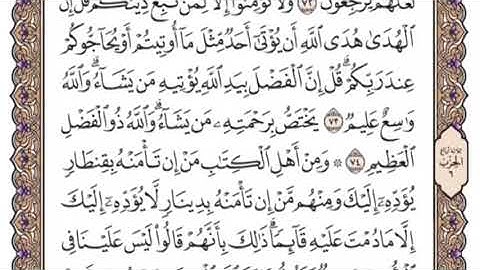 لَعَلَّهُمْ يَرْجِعُونَ ٧٢ وَلَا تُؤْمِنُوٓا۟ إِلَّا لِمَن تَبِعَ دِينَكُمْ قُلْ إِنَّ
ٱلْهُدَىٰ هُدَى ٱللَّهِ أَن يُؤْتَىٰٓ أَحَدٌ مِّثْلَ مَآ أُوتِيتُمْ أَوْ يُحَآجُّوكُمْ
عِندَ رَبِّكُمْ ۗ قُلْ إِنَّ ٱلْفَضْلَ بِيَدِ ٱللَّهِ يُؤْتِيهِ مَن يَشَآءُ ۗ وَٱللَّهُ
وَٰسِعٌ عَلِيمٌ ٧٣ يَخْتَصُّ بِرَحْمَتِهِۦ مَن يَشَآءُ ۗ وَٱللَّهُ ذُو ٱلْفَضْلِ
ٱلْعَظِيمِ ٧٤ ۞ وَمِنْ أَهْلِ ٱلْكِتَٰبِ مَنْ إِن تَأْمَنْهُ بِقِنطَارٍ
يُؤَدِّهِۦٓ إِلَيْكَ وَمِنْهُم مَّنْ إِن تَأْمَنْهُ بِدِينَارٍ لَّا يُؤَدِّهِۦٓ إِلَيْكَ
إِلَّا مَا دُمْتَ عَلَيْهِ قَآئِمًا ۗ ذَٰلِكَ بِأَنَّهُمْ قَالُوا۟ لَيْسَ عَلَيْنَا فِى
الحزب
٦